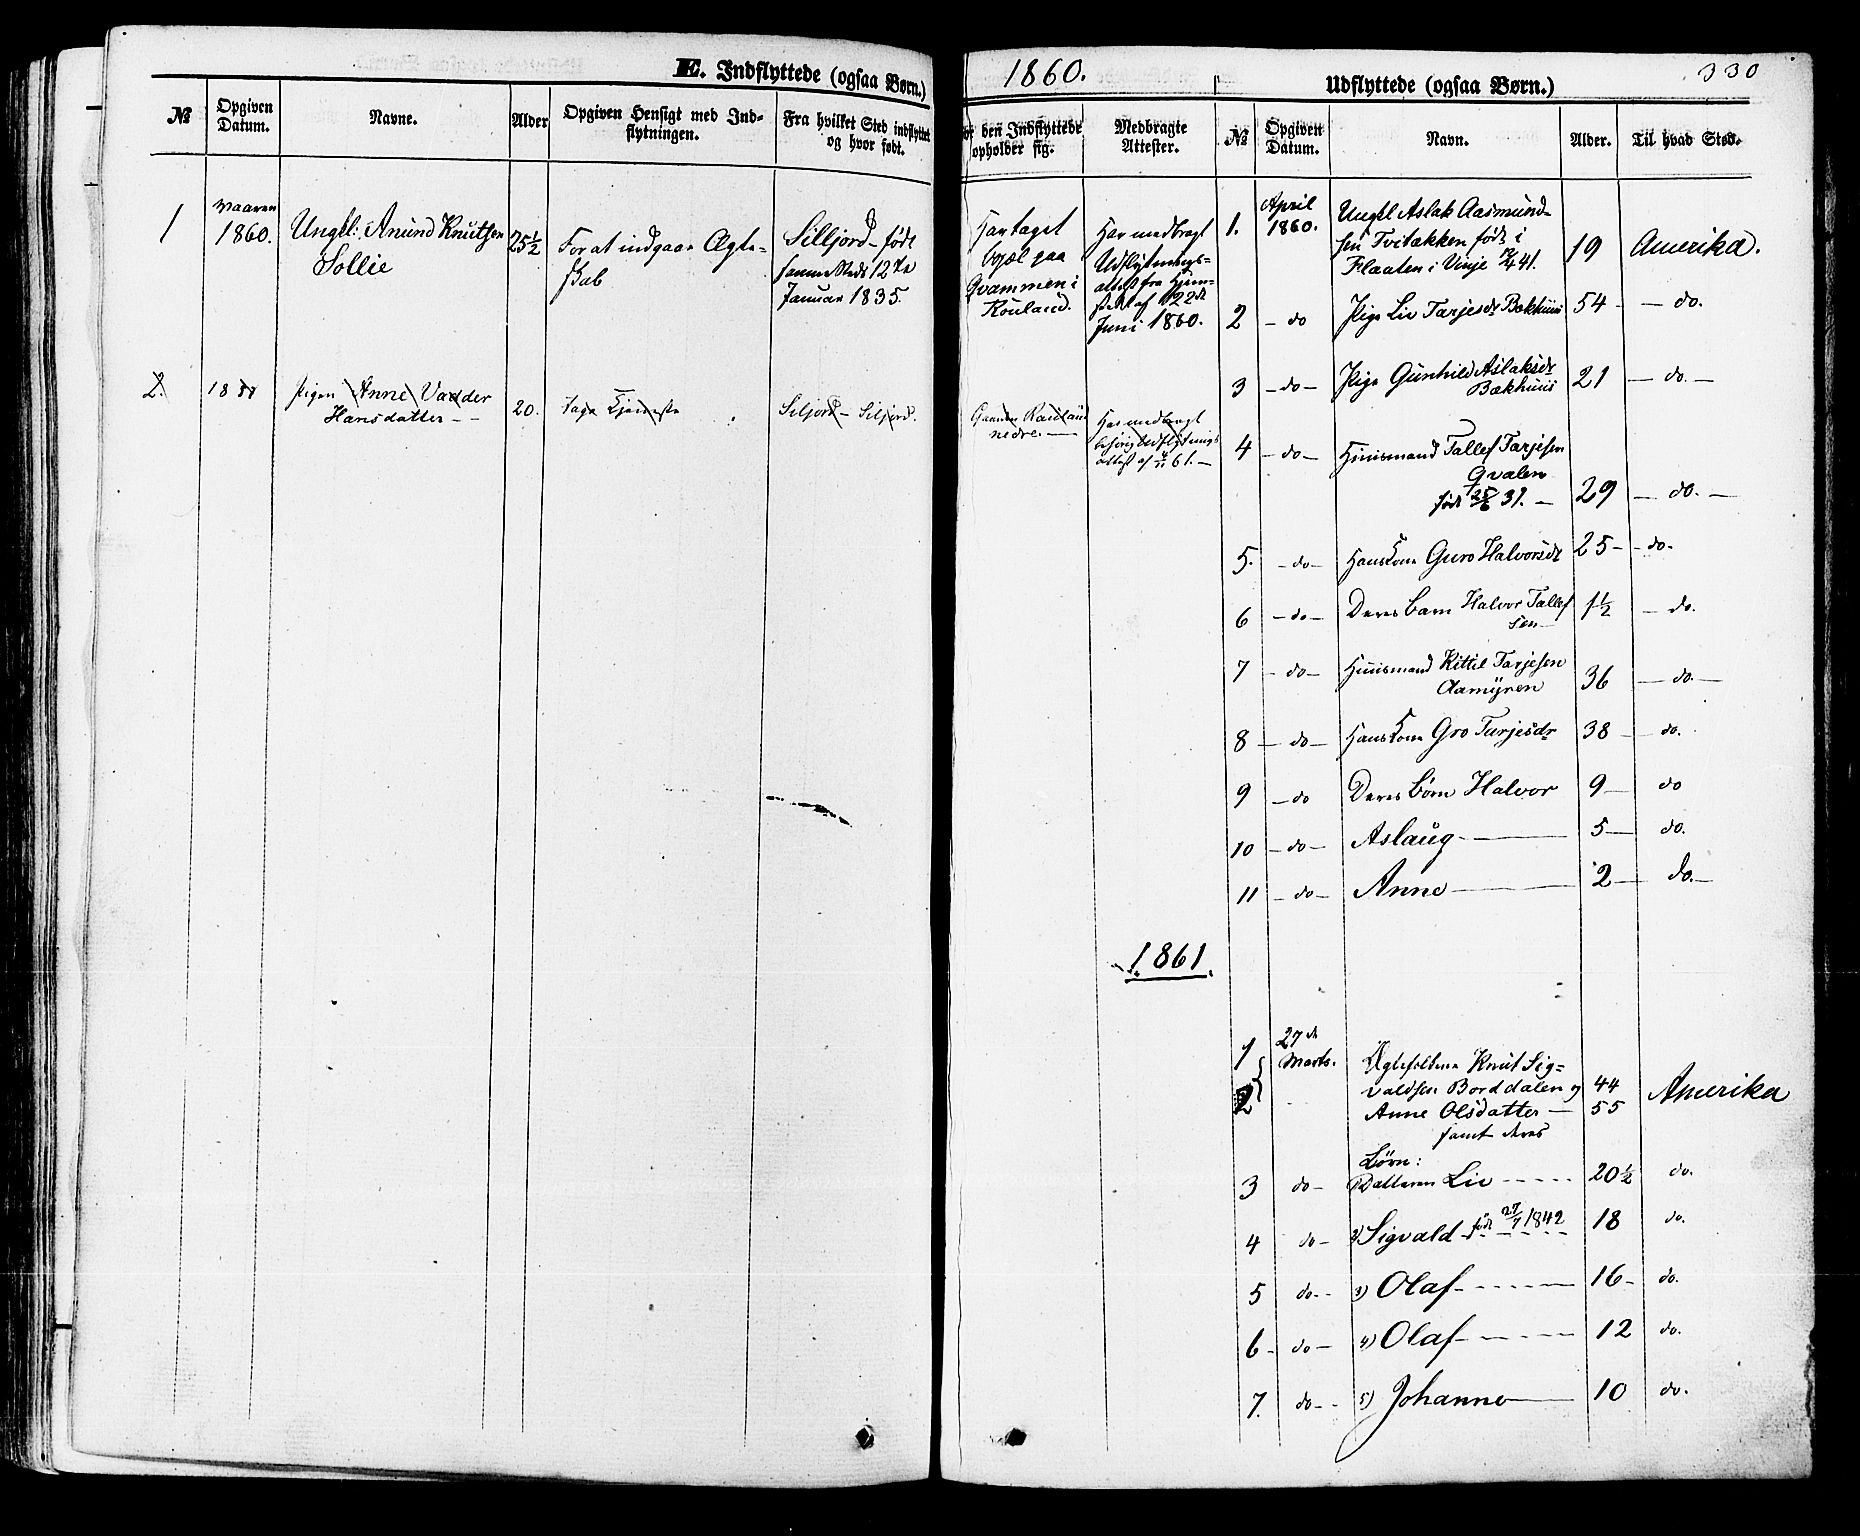 E. Indflyttede (ogsaa Børn.)
№ Opgiven Datum. Navne. Alder Opgiven Hensigt med Ind-flytningen. Fra hvilket Sted indflyttet og hvor født.
1 Vaaren 1860. Ungkl: Anund Knutsen 25½ For at indgaae Ægte- Silljord - født
Sollie skab sammesteds 12te
Januar 1835.
2. pigen Anne Vadder 20. tage Tjeneste Siljord - Siljord.
Hansdatter -
1860. 330
den Indflyttede opholder sig. Medbragte Attester.
Har taget
bopæl paa
Qvammen i
Rouland.
Har medbragt
Udflytnings-
attest fra Hjem-
stedet af 22de
Juni 1860.
Gaarden Rauland
nedre. -
Har medbragt
behørig Udflytnings
attest af 61. -
Udflyttede (ogsaa Børn.)
№ Opgiven Datum. Navn. Alder. Til hvad Sted.
1. April 1860. Ungkl Aslak Aasmund-
sen Tvitækken født i 19 Amerika.
Flaaten i Vinje 41.
2 - do Pige Liv Tarjesdr Bækhuus 54 - - do.
3 - do - Pige Gunhild Aslaksdr 21 - do. -
Bækhuus
4 - do - Huusmand Tallef Tarjesen
Qvalen
født 25/6 31. - 29 - do. -
5. - do - Hans Kone Guro Halvorsdr 25 - - do.
6 - do - Deres Barn Halvor Tallef 1½ - do.
sen -
7 - do - Huusmand Kittil Tarjesen
Aamyren 36 - do. -
8 - do - Hans Kone Gro Turjesdr 38 - do.
9 - do Deres Børn Halvor 9 - do
10 - do - Aslaug - 5 - do.
11 - do - Anne - 2 - do. -
1861.
1 27de Marts. Ægtefolkene Knut Sig-
valdsen Borddalen og 44 Amerika
2 Anne Olsdatter - 55
samt deres
Børn:
3 do - 1) Datteren Liv - - - - 20½ do.
4 do - 2) Sigvald født 27/7 1842 18 do.
5 do - - 3) Olaf - - - - - 16 - do.
6 - do - 4) Olaf - - - - - 12 do.
7. do - - 5) Johanne - 10 do.